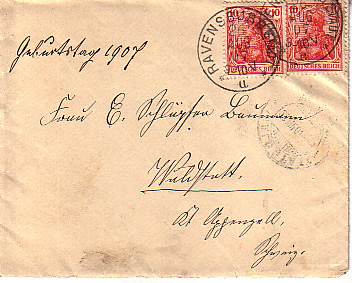 Geburtstag 1907
10 10
RAVENSBURG
DEUTSCHES REICH DEUTSCHES REICH
Frau E. Schläpfer Baumann
Waldstatt.
Kt Appenzell.
Schweiz.